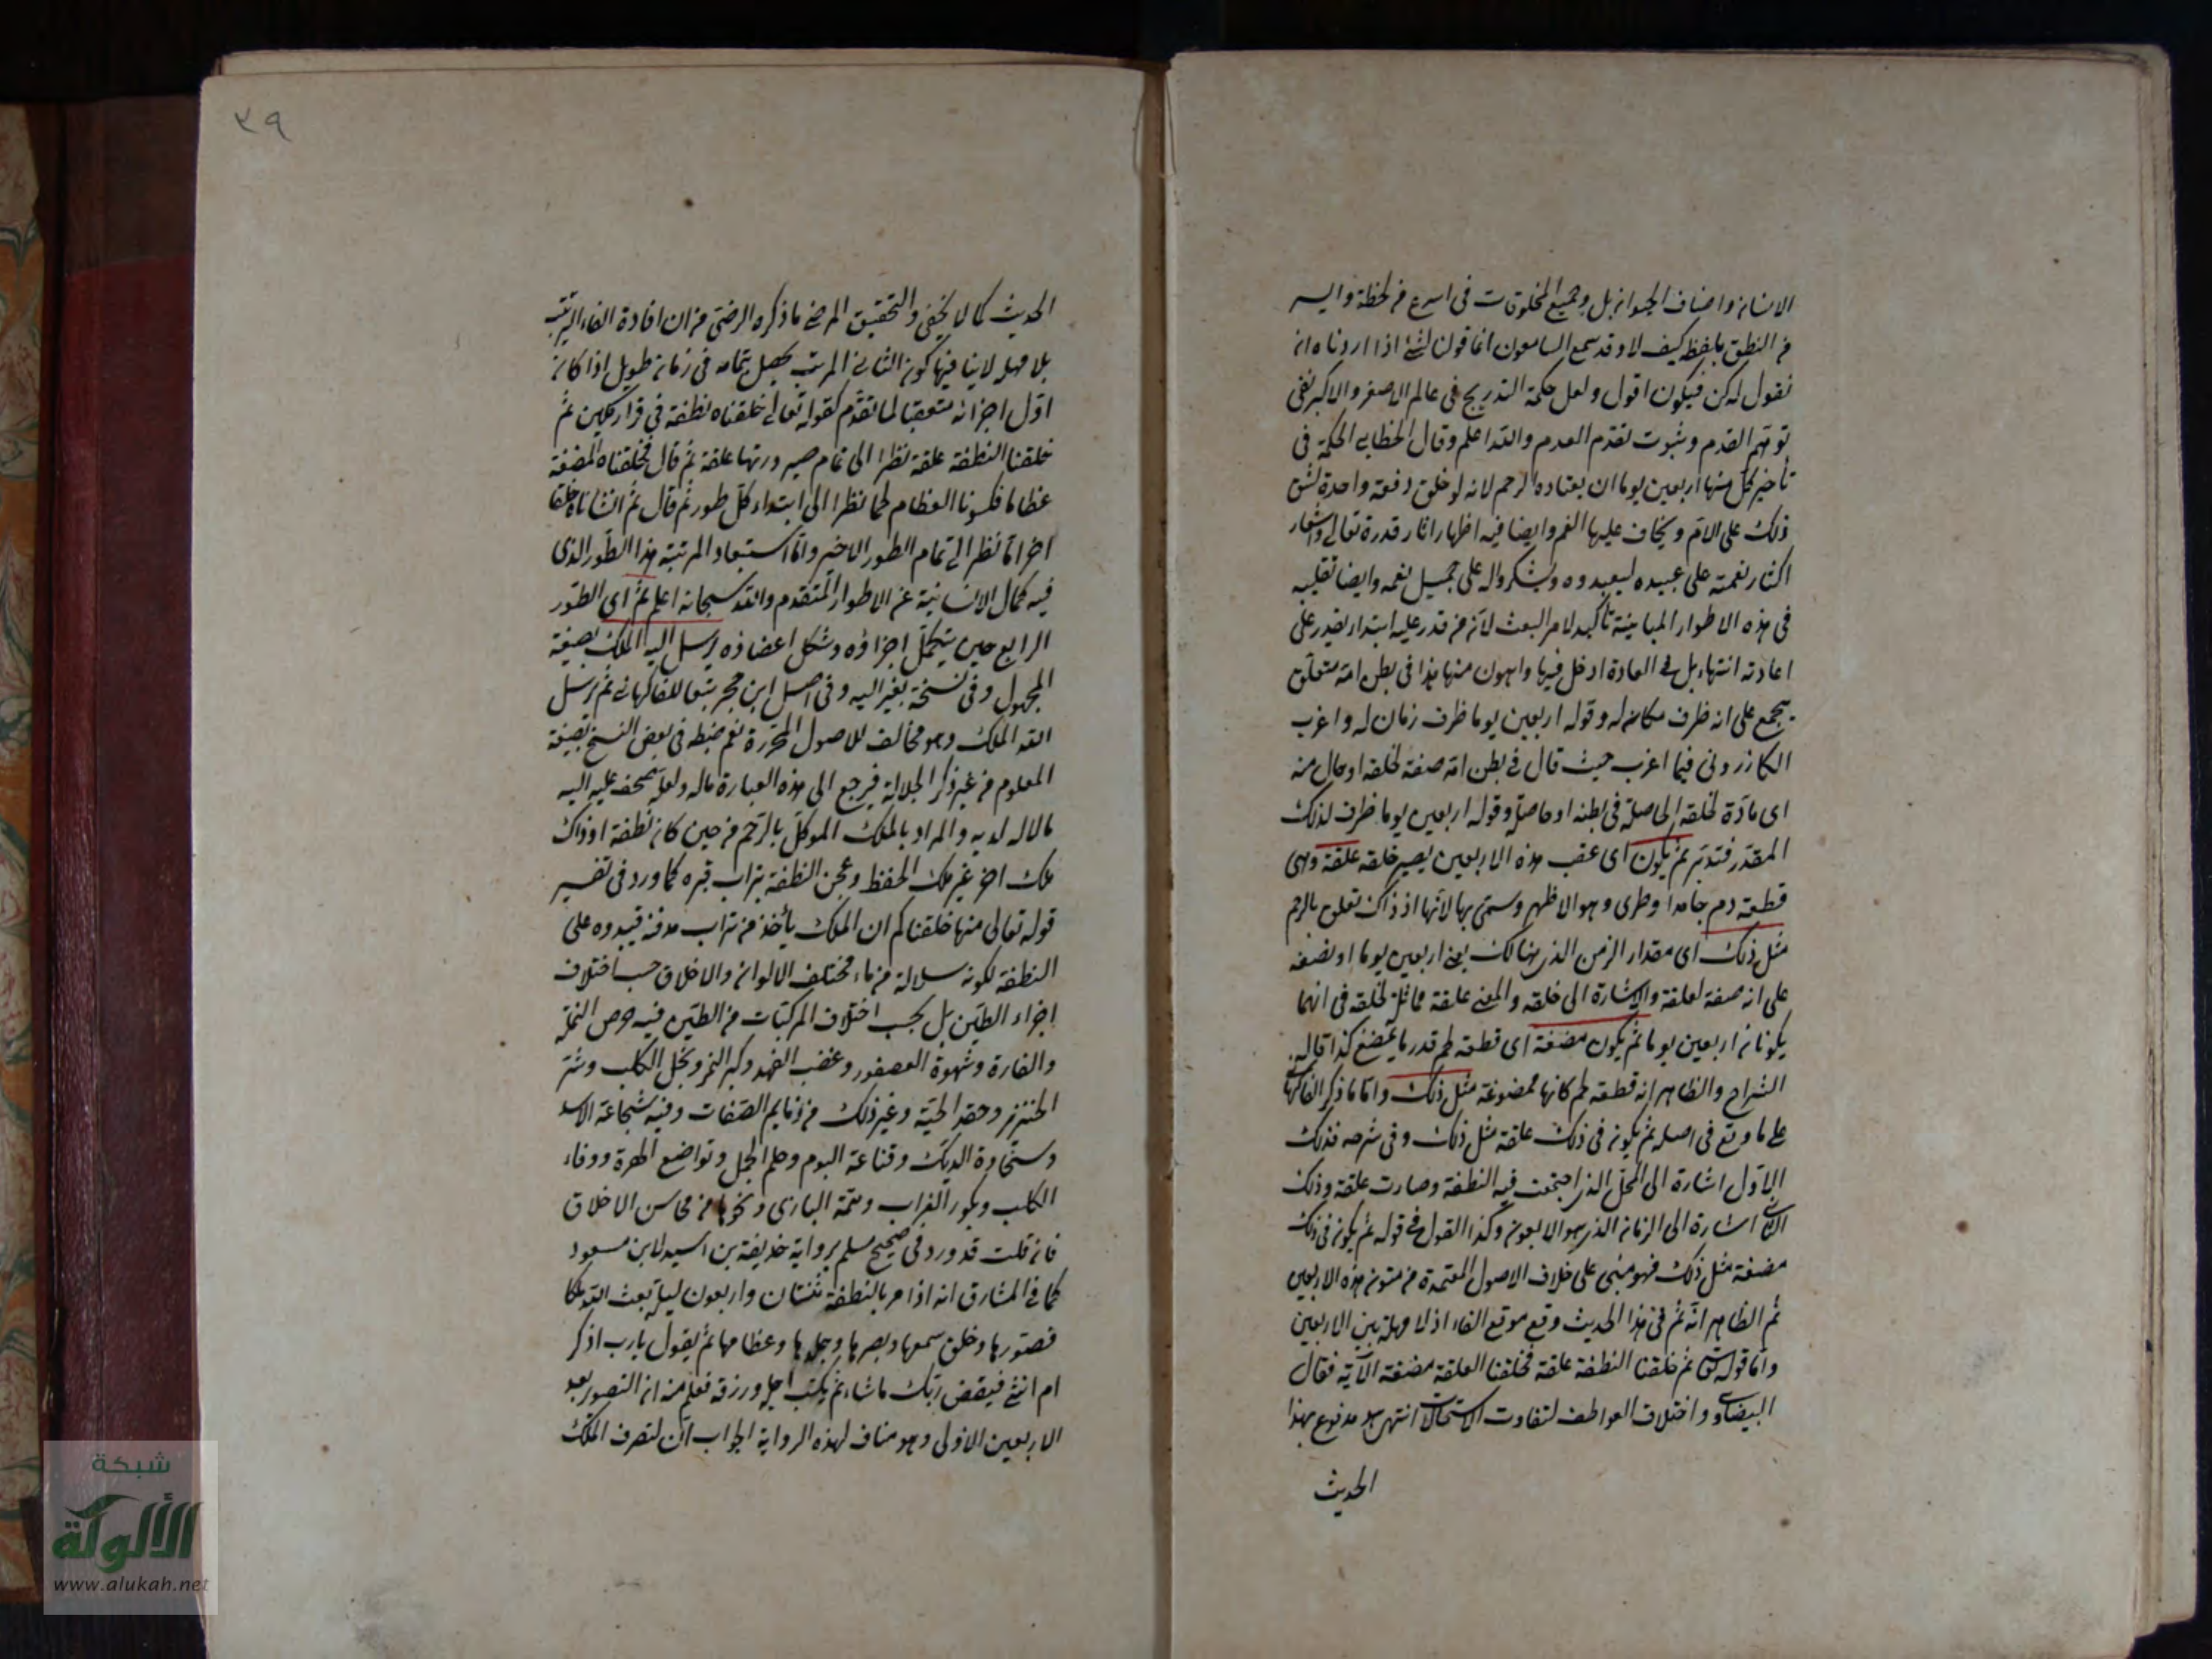 الانسان واصناف الحيوان بل وجميع المخلوقات فى اسرع من لحظة وايسر
من النطق بلفظ كيف لا وقد سمع السامعون انما قولنا لشئ اذا اردناه ان
نقول له كن فيكون اقول ولعل حكمة التدريج فى عالم الاصغر والاكبر نفى
توهم القدم وثبوت تقدم العدم والله اعلم وقال الخطابى الحكمة فى
تأخير كل منها اربعين يوما ان يعتاده الرحم لانه لو خلق دفعة واحدة لشق
ذلك على الام ويخاف عليها الغم وايضا فيه اظهار اثار قدرة تعالى واشعار
اكثار نعمته على عبيده ليعبدوه ويشكروا له على جميل نعمه وايضا تقلبه
فى هذه الاطوار المباينة تأكيد لامر البعث لان من قدر عليه ابتداء يقدر على
اعادته انتهاء بل فى العادة ادخل فيها واهون منها هذا فى بطن امه متعلق
بيجمع على انه ظرف مكان له وقوله اربعين يوما ظرف زمان له واغرب
الكازرونى فيما اغرب حيث قال فى بطن امه صفة لخلقه او حال منه
اى مادة لخلقه الحاصلة فى بطنه او حاصلة وقوله اربعين يوما ظرف لذلك
المقدر فتدبر ثم يكون اى عقب هذه الاربعين يصير خلقه علقة وهى
قطعة دم جامدا وطرى وهو الاظهر وسمى بها لانها اذ ذاك تعلق بالرحم
مثل ذلك اى مقدار الزمن الذى هنالك يعنى اربعين يوما او نصفه
على انه صفة لعلقة والاشارة الى خلقه والمعنى علقة مماثلة لخلقه فى انهما
يكونان اربعين يوما ثم يكون مضغة اى قطعة لحم قدر ما يمضغ كذا قاله
الشراح والظاهر انه قطعة لحم كانها ممضوغة مثل ذلك واما ما ذكر الفاكهانى
على ما وقع فى اصله ثم يكون فى ذلك علقة مثل ذلك وفى شرحه فذلك
الاول اشارة الى المحل الذى اجتمعت فيه النطفة وصارت علقة وذلك
الثانى اشارة الى الزمان الذى هو الاربعون وكذا القول فى قوله ثم يكون فى ذلك
مضغة مثل ذلك فهو مبنى على خلاف الاصول المعتمدة من متون هذه الاربعين
ثم الظاهر ان ثم فى هذا الحديث وقع موقع الفاء اذ لا مهلة بين الاربعين
واما قوله تعالى ثم خلقنا النطفة علقة فخلقنا العلقة مضغة الآية فقال
البيضاوى واختلاف العواطف لتفاوت الاستحالات انتهى وهو مدفوع بهذا
الحديث
٣٩
الحديث كما لا يخفى والتحقيق المرضى ما ذكره الرضى من ان افادة الفاء الترتيب
بلا مهلة لا ينافيها كون الثانى المرتب يحصل بتمامه فى زمان طويل اذا كان
اول اجزائه متعقبا لما تقدم كقوله تعالى خلقناه نطفة فى قرار مكين ثم
خلقنا النطفة علقة نظرا الى تمام صيرورتها علقة ثم قال فخلقنا المضغة
عظاما فكسونا العظام لحما نظرا الى ابتداء كل طور ثم قال ثم انشاناه خلقا
اخر اما نظرا الى تمام الطور الاخير واما استبعاد المرتبة هذا الطور الذى
فيه كمال الانسانية عن الاطوار المتقدم والله سبحانه اعلم ثم اى الطور
الرابع حين يتكمل اجزاؤه وتشكل اعضاؤه يرسل اليه الملك بصيغة
المجهول وفى نسخة بغير اليه وفى اصل ابن حجر تبعا للفاكهانى ثم يرسل
الله الملك وهو مخالف للاصول المحررة نعم ضبط فى بعض النسخ بصيغة
المعلوم من غير ذكر الجلالة فيرجع الى هذه العبارة ماله ولعله تصحف عليه اليه
بالاله لديه والمراد بالملك الموكل بالرحم من حين كان نطفة او ذاك
ملك اخر غير ملك الحفظ وعجن النطفة بتراب قبره كما ورد فى تفسير
قوله تعالى منها خلقناكم ان الملك يأخذ من تراب مدفنه فيبدده على
النطفة لكونه سلالة من ماء مختلف الالوان والاخلاق حسب اختلاف
اجزاء الطين بل بحسب اختلاف المركبات من الطين فيه حرص النملة
والفارة وشهوة العصفور وغضب الفهد وكبر النمر وبخل الكلب وشره
الخنزير وحقد الحية وغير ذلك من ذمايم الصفات وفيه شجاعة الاسد
وسخاوة الديك وقناعة البوم وحلم الجمل وتواضع الهرة ووفاء
الكلب وبكور الغراب وهمة البازى ونحوها من محاسن الاخلاق
فان قلت قد ورد فى صحيح مسلم برواية حذيفة بن اسيد لابن مسعود
كما فى المشارق انه اذا مر بالنطفة ثنتان واربعون ليلة بعث الله ملكا
فصورها وخلق سمعها وبصرها وجلدها وعظامها ثم يقول يارب اذكر
ام انثى فيقضى ربك ما شاء ثم يكتب اجله ورزقه فعلم منه ان التصور بعد
الاربعين الاولى وهو مناف لهذه الرواية الجواب ان لتصرف الملك
شبكة
الألوكة
www.alukah.net